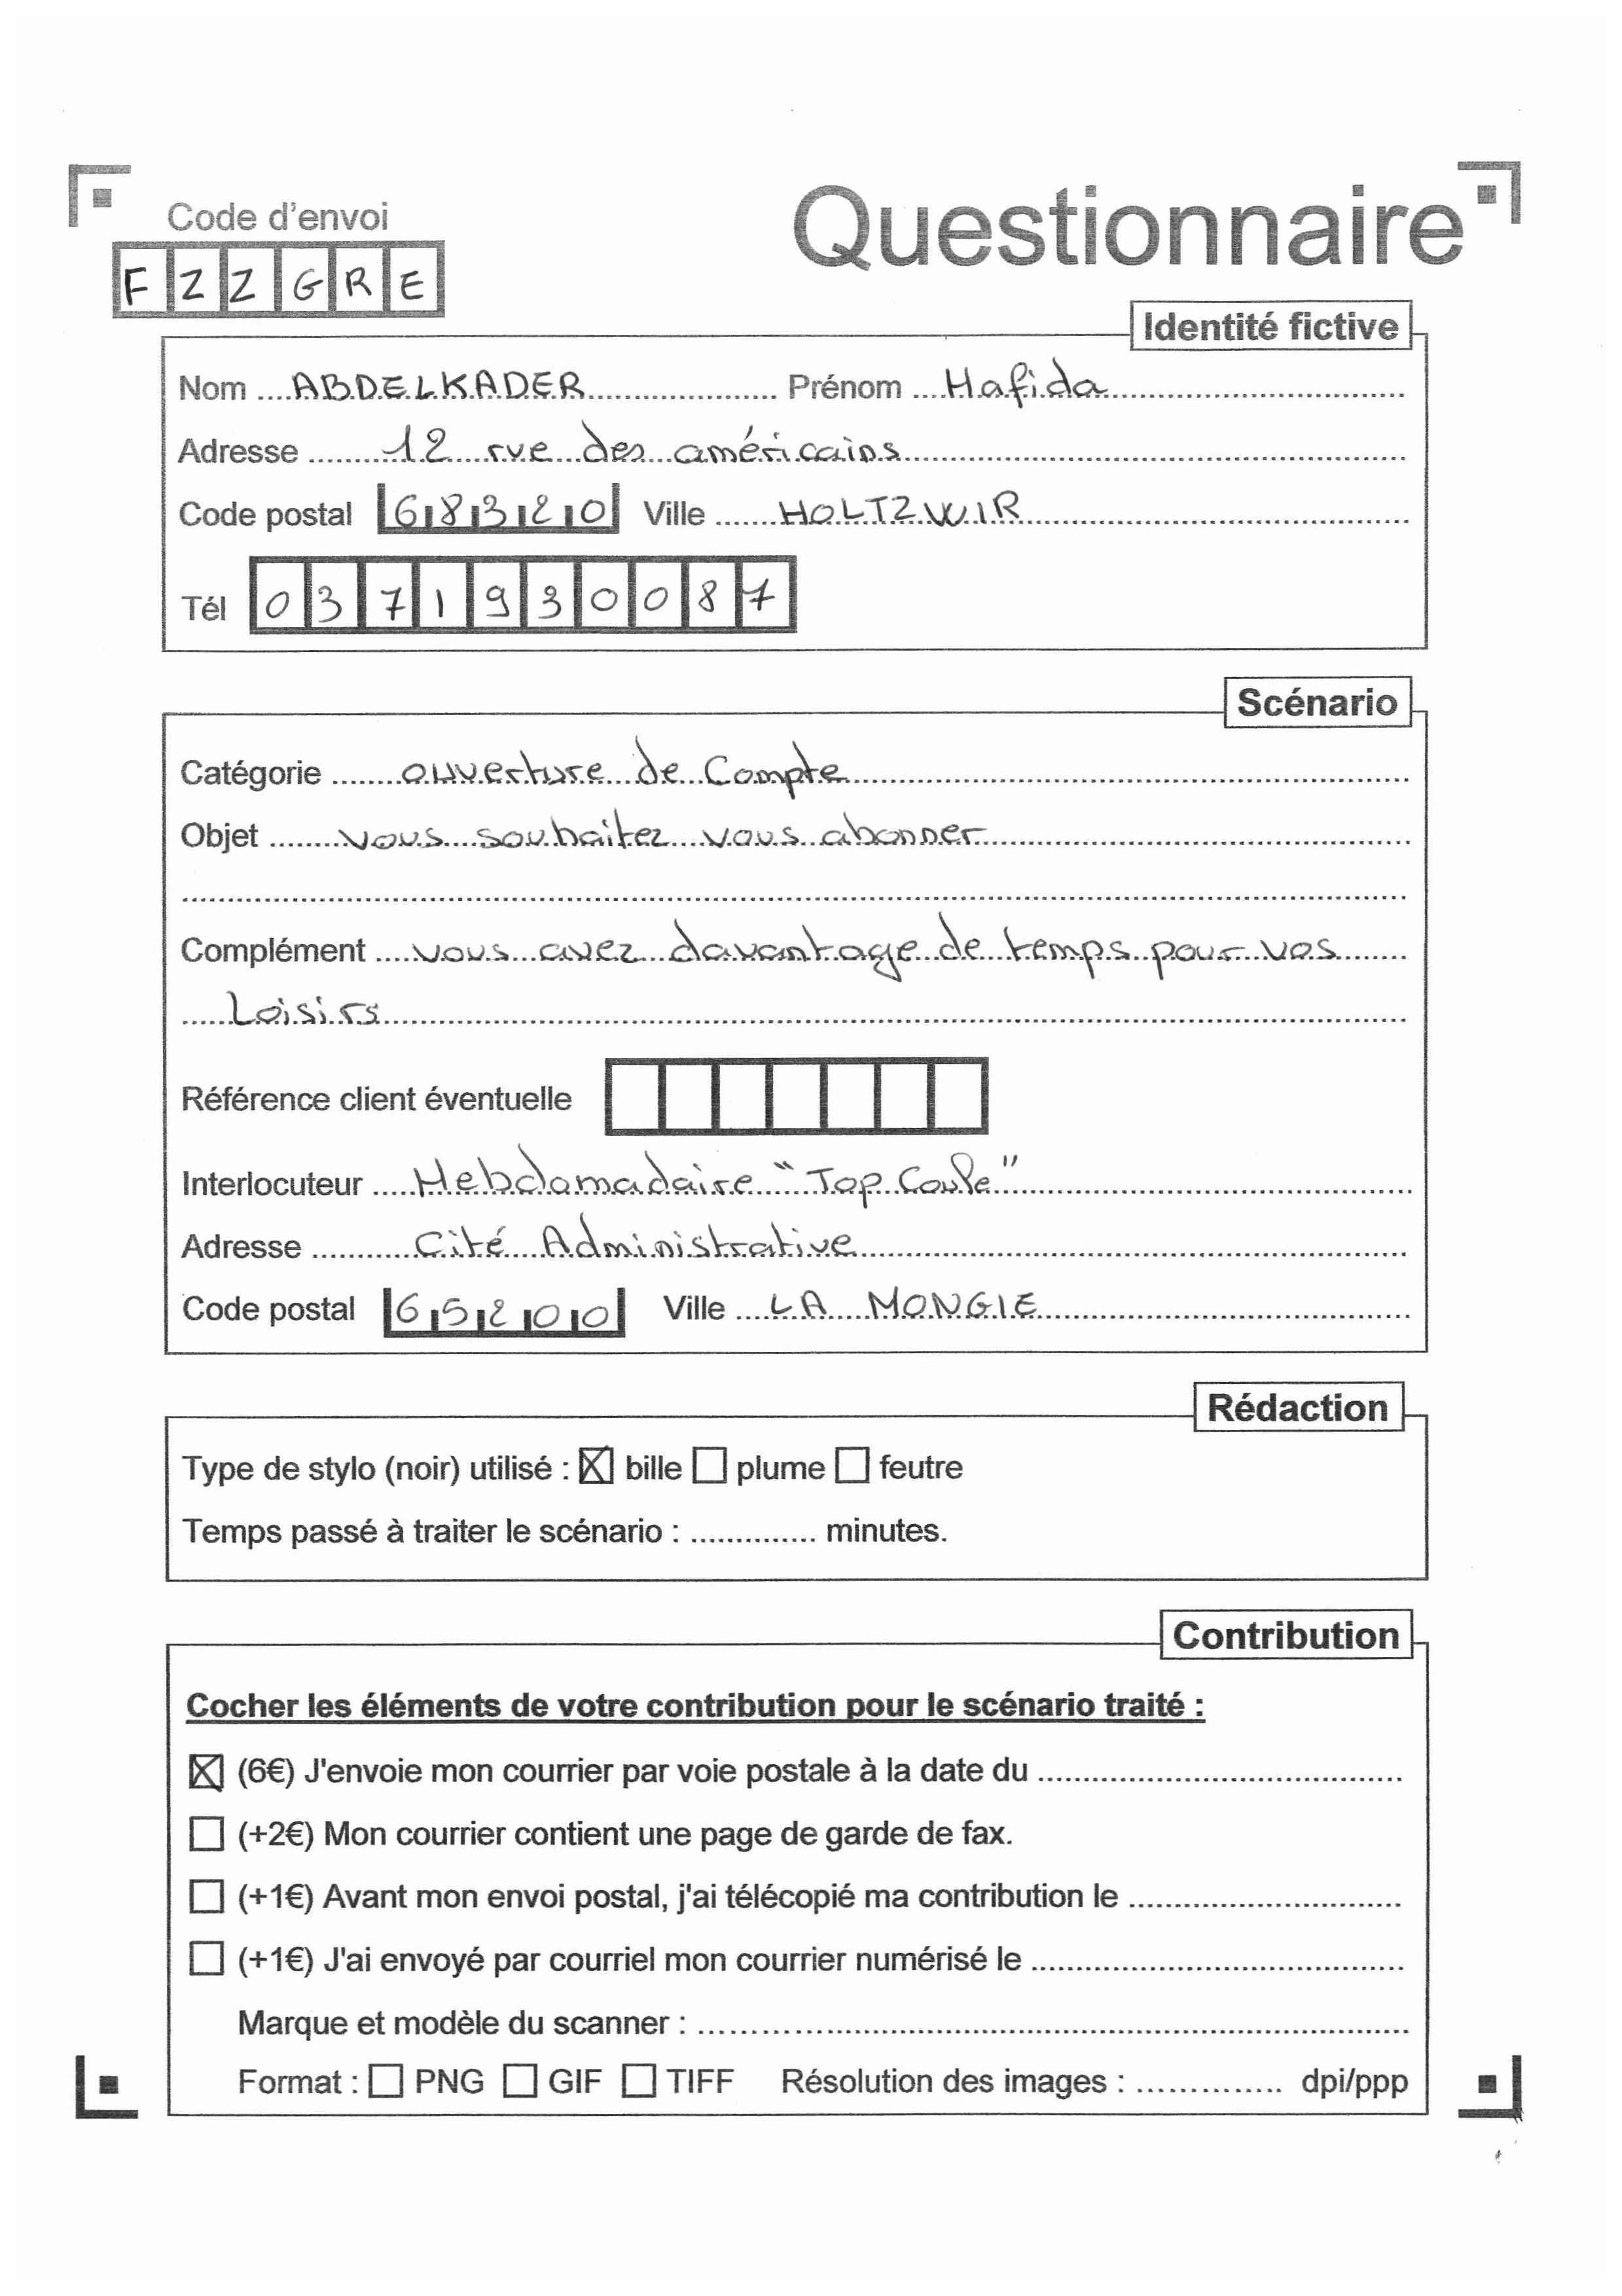 Code d'envoi
Questionnaire
FZZGRE
Identité fictive
Nom ABDELKADER Prénom Hafida
Adresse 12 rue des américains
Code postal 68320 Ville HOLTZWIR
Tél 0371930087
Scénario
Catégorie ouverture de Compte
Objet vous souhaitez vous abonner
Complément vous avez davantage de temps pour vos
Loisirs
Référence client éventuelle
Interlocuteur Hebdomadaire "Top Coule"
Adresse Cité Administrative
Code postal 65200 Ville LA MONGIE
Rédaction
Type de stylo (noir) utilisé : ☒ bille ☐ plume ☐ feutre
Temps passé à traiter le scénario : .............. minutes.
Contribution
Cocher les éléments de votre contribution pour le scénario traité :
☒ (6€) J'envoie mon courrier par voie postale à la date du
☐ (+2€) Mon courrier contient une page de garde de fax.
☐ (+1€) Avant mon envoi postal, j'ai télécopié ma contribution le
☐ (+1€) J'ai envoyé par courriel mon courrier numérisé le
Marque et modèle du scanner :
Format : ☐ PNG ☐ GIF ☐ TIFF Résolution des images : .............. dpi/ppp